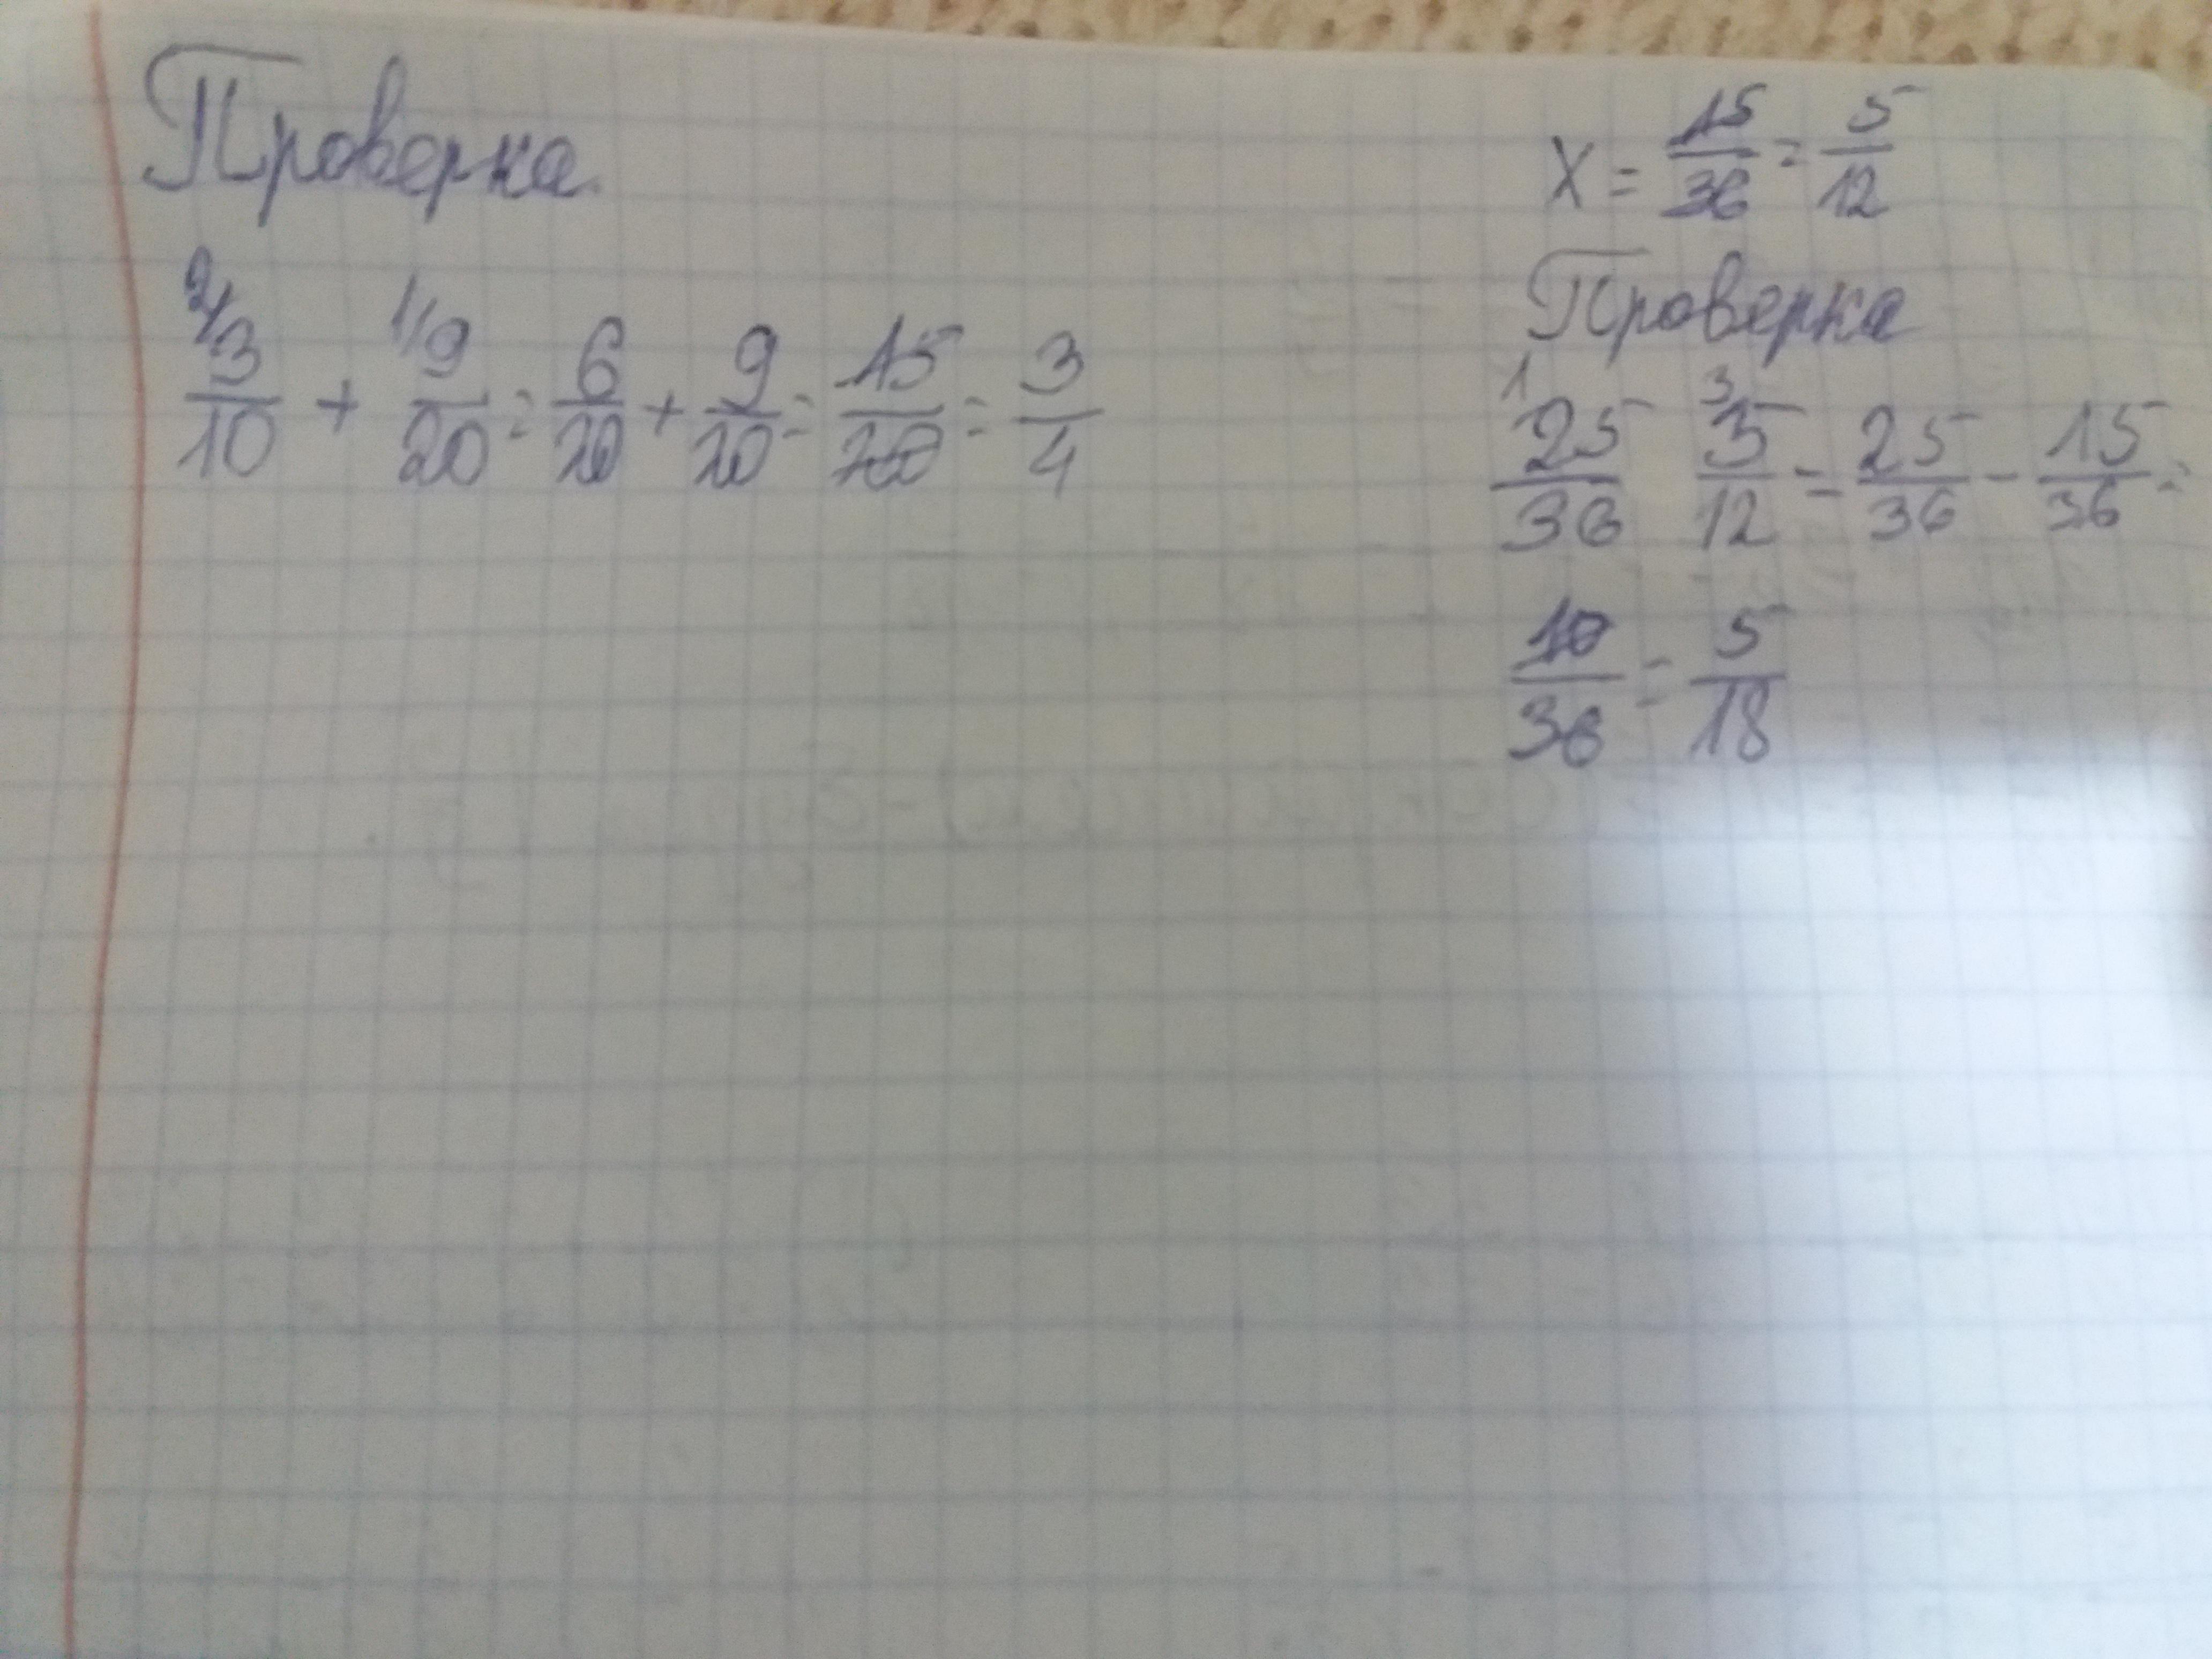 Проверка
2/ 3/10 + 1/ 9/20 = 6/20 + 9/20 = 15/20 = 3/4
x = 15/36 = 5/12
Проверка
1 25/36 3 5/12 = 25/36 - 15/36 =
10/36 = 5/18